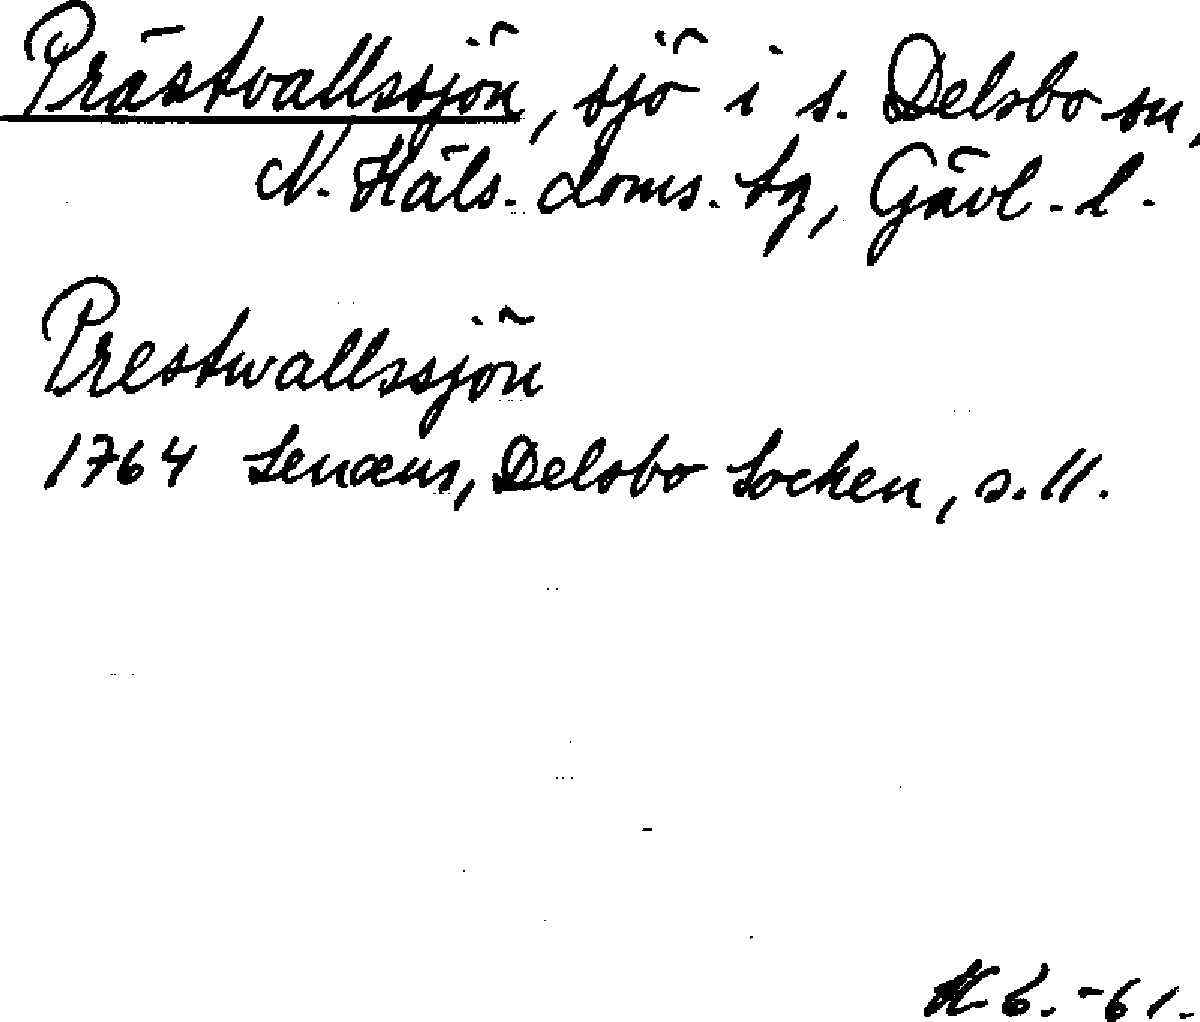 Prästvallssjön, sjö i s. Delsbo sn,
N. Häls. doms. tg, Gävl. l.
Prestwallssjön
1764 Lenæus, Delsbo Socken, s. 11.
-61.